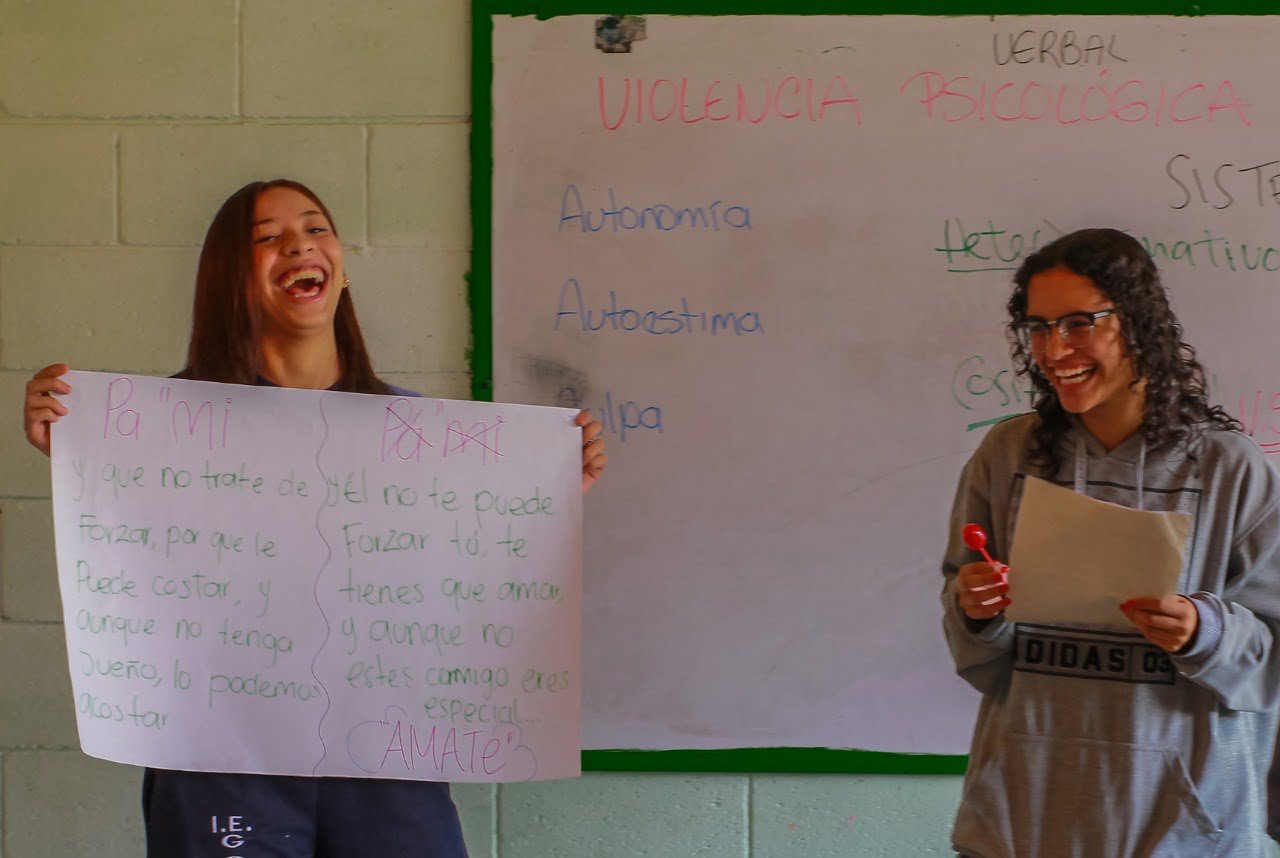 VERBAL
VIOLENCIA PSICOLÓGICA
SISTE
Autonomía
Hete nativo
Autoestima
Cosi
ulpa
Pa "mi
y que no trate de
Forzar, por que le
Puede costar, y
aunque no tenga
Sueño, lo podemos
acostar
Pá" mi
y Él no te puede
Forzar tú, te
tienes que amar,
y aunque no
estes conmigo eres
especial...
"ÁMATE"
DIDAS 03
I.E.
G